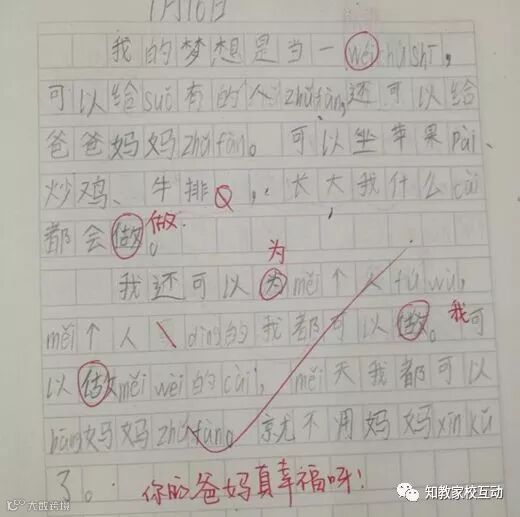 1月16日
我的梦想是当一wéi chú shī,
可以给suǒ有的人zhǔ fàn,还可以给
爸爸妈妈zhǔ fàn。可以坐苹果pài、
炒鸡、牛排,长大我什么cài
都会做。做
为
我还可以为měi个人fú wù,
měi个人dǐng的我都可以做。我可
以做měi wèi的cài,měi天我都可以
bāng妈妈zhǔ fàn。就不用妈妈xīn kǔ
了。你的爸妈真幸福呀!
大数跨境
知教家校互动